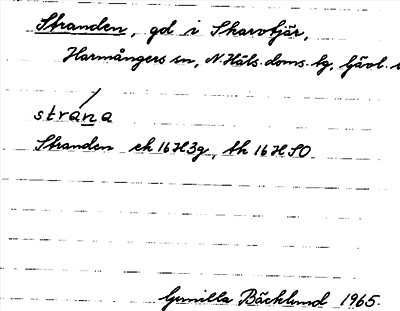 Stranden, gd i Skarvtjär,
Harmångers sn, N. Häls. doms. tg, Gävl.
strána
Stranden ek 16H3g, th 16H SO
Gunilla Bäcklund 1965.